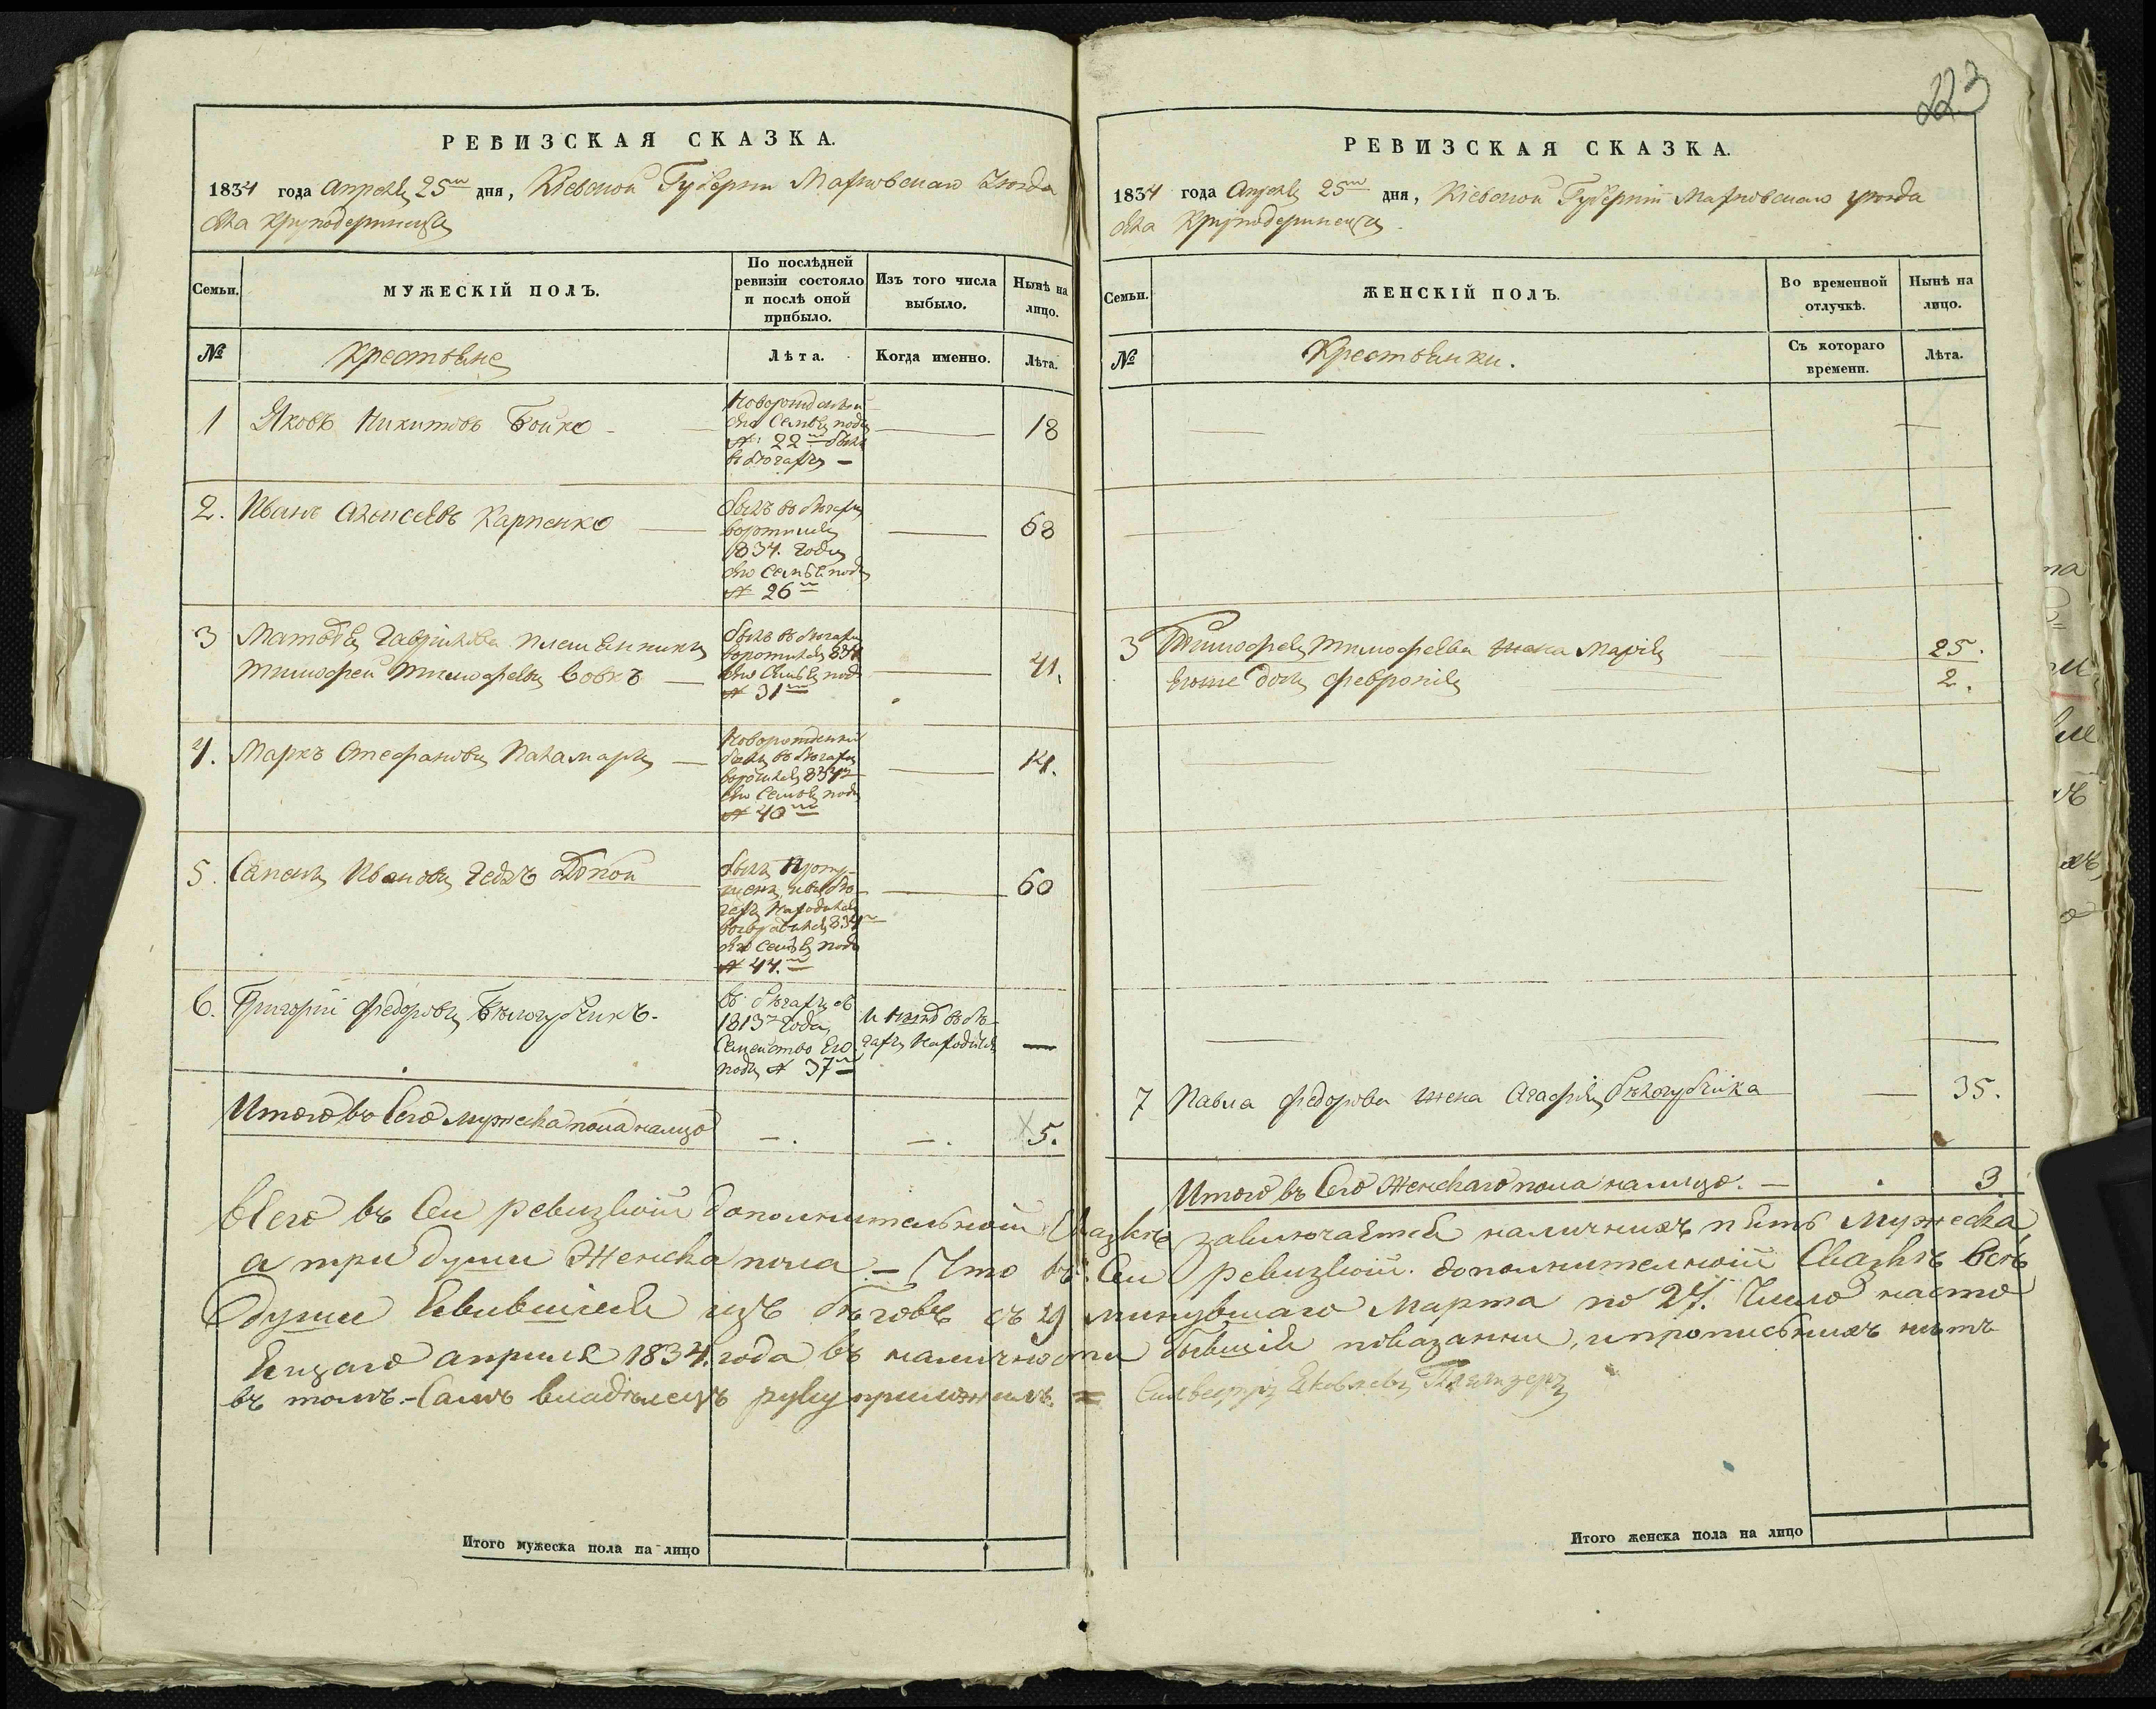 223
РЕВИЗСКАЯ СКАЗКА.
1834 года Апреля 25го дня, Кіевской Губерніи Махновскаго Уезда
села Круподеринецъ
Семьи.
МУЖЕСКІЙ ПОЛЪ.
По послѣдней ревизіи состояло и послѣ оной прибыло.
Изъ того числа выбыло.
Нынѣ на лицо.
№
Крестьяне
Лѣта.
Когда именно.
Лѣта.
1 Яковъ Никитовъ Бойко
Новорожденный
его Семья подъ
№ 22м былъ
въ бѣгахъ —
18
2. Иванъ Алексеевъ Карпенко
былъ въ бѣгахъ
воротился
1834. года
его Семья подъ
№ 26м
68
3 Матвѣя Гаврилова племянникъ
Тимофей Тимофеевъ Вовкъ
былъ въ бѣгахъ
воротился 834
его Семья подъ
№ 31м
41.
4. Маркъ Стефановъ Паламаръ
Новорожденный
былъ въ бѣгахъ
воротился 834го
его Семья подъ
№ 40м
14.
5. Семенъ Ивановъ
былъ
834го
его Семья подъ
№ 44.м
60
6. Григорій Федоровъ Бѣлогубчикъ.
въ бѣгахъ съ
1813го года,
Семейство Его
подъ № 37м
и нынѣ въ бѣ-
гахъ находится
—
Итого въ Село мужеска пола налицо — . — . 5.
РЕВИЗСКАЯ СКАЗКА.
1834 года Апреля 25го дня, Кіевской Губерніи Махновскаго уезда
села Круподеринецъ.
Семьи.
ЖЕНСКІЙ ПОЛЪ.
Во временной отлучкѣ.
Нынѣ на лицо.
№
Крестьянки.
Съ котораго времени.
Лѣта.
3 Тимофея Тимофеева жена Марія 25.
Егоже дочь Февронія 2.
7 Павла Федорова жена Агафія Бѣлогубчика 35.
Итого въ Село Женскаго пола налицо. — . 3
всего въ Сей ревизской дополнительной Сказкѣ заключается наличныхъ пять Мужеска,
а три души Женска пола — Что въ Сей ревизской дополнительной Сказкѣ всѣ
души явившіеся изъ бѣговъ съ 29 минувшаго Марта по 24. Число насто
ящаго апреля 1834. года въ наличности бывшія показанны, и прописныхъ нѣтъ
въ томъ.- Самъ владѣлецъ руку приложилъ. = Сильвестръ Яковлевъ
Итого мужеска пола на лицо
Итого женска пола на лицо